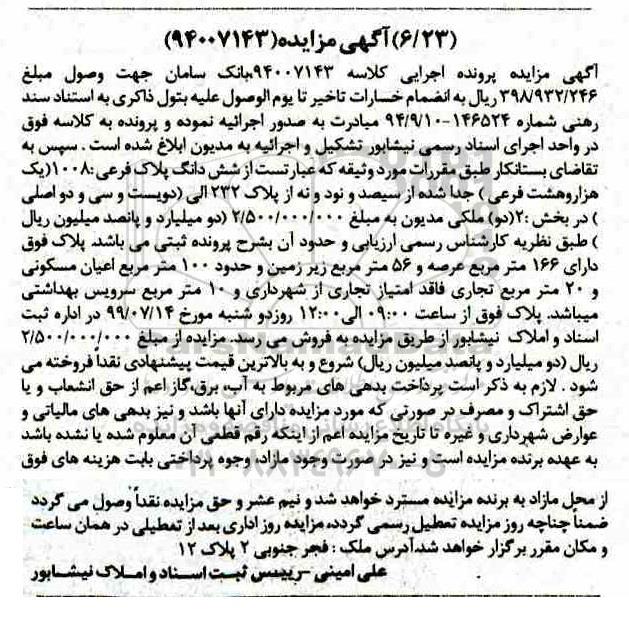 (۶/۲۳)آگهی مزایده(۹۴۰۰۷۱۴۳)
آگهی مزایده پرونده اجرایی کلاسه ۹۴۰۰۷۱۴۳،بانک سامان جهت وصول مبلغ
۳۹۸/۹۳۲/۲۴۶ ریال به انضمام خسارات تاخیر تا یوم الوصول علیه بتول ذاکری به استناد سند
رهنی شماره ۱۴۶۵۲۴-۹۴/۹/۱۰ مبادرت به صدور اجرائیه نموده و پرونده به کلاسه فوق
در واحد اجرای اسناد رسمی نیشابور تشکیل و اجرائیه به مدیون ابلاغ شده است . سپس به
تقاضای بستانکار طبق مقررات مورد وثیقه که عبارتست از شش دانگ پلاک فرعی :۱۰۰۸(یک
هزاروهشت فرعی ) جدا شده از سیصد و نود و نه از پلاک ۲۳۲ الی (دویست و سی و دو اصلی
) در بخش :۲(دو) ملکی مدیون به مبلغ ۲/۵۰۰/۰۰۰/۰۰۰ (دو میلیارد و پانصد میلیون ریال
) طبق نظریه کارشناس رسمی ارزیابی و حدود آن بشرح پرونده ثبتی می باشد. پلاک فوق
دارای ۱۶۶ متر مربع عرصه و ۵۶ متر مربع زیر زمین و حدود ۱۰۰ متر مربع اعیان مسکونی
و ۲۰ متر مربع تجاری فاقد امتیاز تجاری از شهرداری و ۱۰ متر مربع سرویس بهداشتی
میباشد. پلاک فوق از ساعت ۰۹:۰۰ الی۱۲:۰۰ روزدو شنبه مورخ ۹۹/۰۷/۱۴ در اداره ثبت
اسناد و املاک نیشابور از طریق مزایده به فروش می رسد. مزایده از مبلغ ۲/۵۰۰/۰۰۰/۰۰۰
ریال (دو میلیارد و پانصد میلیون ریال) شروع و به بالاترین قیمت پیشنهادی نقدا فروخته می
شود . لازم به ذکر است پرداخت بدهی های مربوط به آب، برق،گاز اعم از حق انشعاب و یا
حق اشتراک و مصرف در صورتی که مورد مزایده دارای آنها باشد و نیز بدهی های مالیاتی و
عوارض شهرداری و غیره تا تاریخ مزایده اعم از اینکه رقم قطعی آن معلوم شده یا نشده باشد
به عهده برنده مزایده است و نیز در صورت وجود مازاد، وجوه پرداختی بابت هزینه های فوق
از محل مازاد به برنده مزایده مسترد خواهد شد و نیم عشر و حق مزایده نقداً وصول می گردد
ضمناً چناچه روز مزایده تعطیل رسمی گردد، مزایده روز اداری بعد از تعطیلی در همان ساعت
و مکان مقرر برگزار خواهد شد.آدرس ملک : فجر جنوبی ۲ پلاک ۱۲
علی امینی -رییس ثبت اسناد و املاک نیشابور